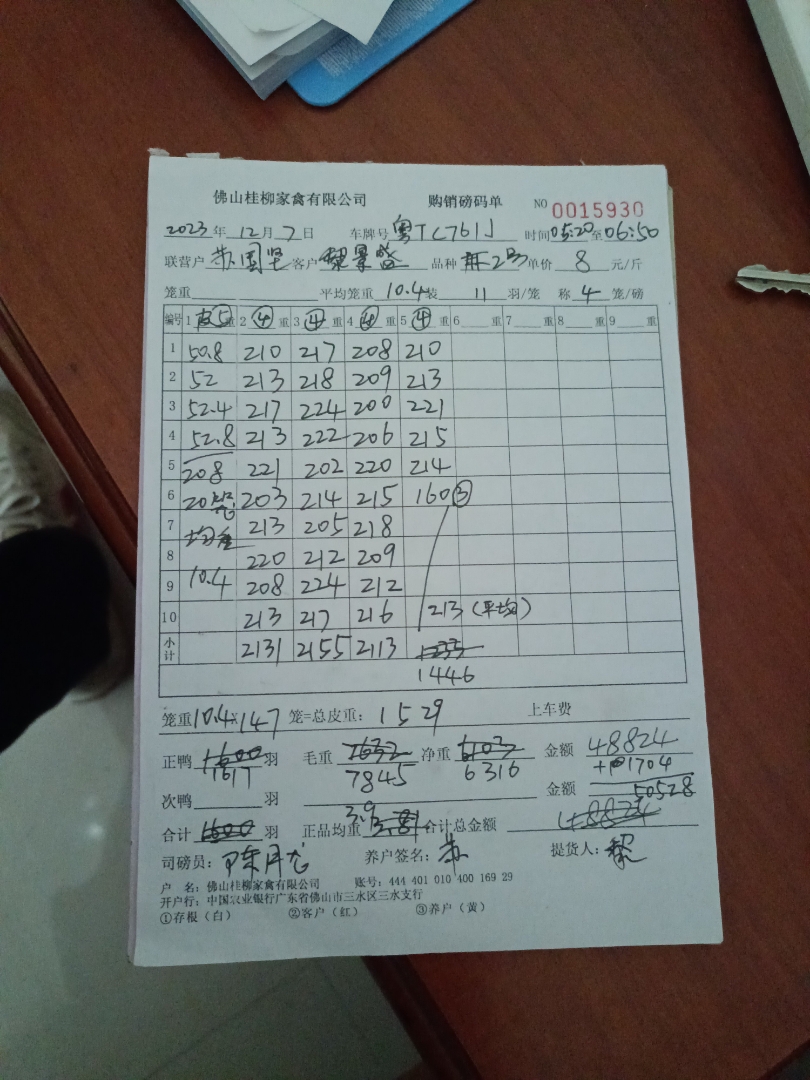 佛山桂柳家禽有限公司 购销磅码单 NO 0015930
2023年 12月 7日 车牌号 粤TC761J 时间 05:20 至 06:50
联营户 苏国坚 客户 黎景盛 品种 麻2号 单价 8 元/斤
笼重 平均笼重 10.4 装 11 羽/笼 称 4 笼/磅
编号 1 皮⑤重 2 ④重 3 ④重 4 ④重 5 ④重 6 重 7 重 8 重 9 重
1 50.8 210 217 208 210
2 52 213 218 209 213
3 52.4 217 224 200 221
4 52.8 213 222 206 215
5 208 221 202 220 214
6 20笼 203 214 215 160③
7 均重 213 205 218
8 220 212 209
9 10.4 208 224 212
10 213 217 216 213（平均）
小计 2131 2155 2113 1233
1446
笼重 10.4×147 笼=总皮重： 1529 上车费
正鸭 1600 羽 毛重 7632 净重 6103 金额 48824
1617 7845 6316 +1704
次鸭 羽 金额 50528
合计 1600 羽 正品均重 3.9 3.81 合计总金额 48824
司磅员： 养户签名：苏 提货人：黎
户 名：佛山桂柳家禽有限公司 账号：444 401 010 400 169 29
开户行：中国农业银行广东省佛山市三水区三水支行
①存根（白） ②客户（红） ③养户（黄）